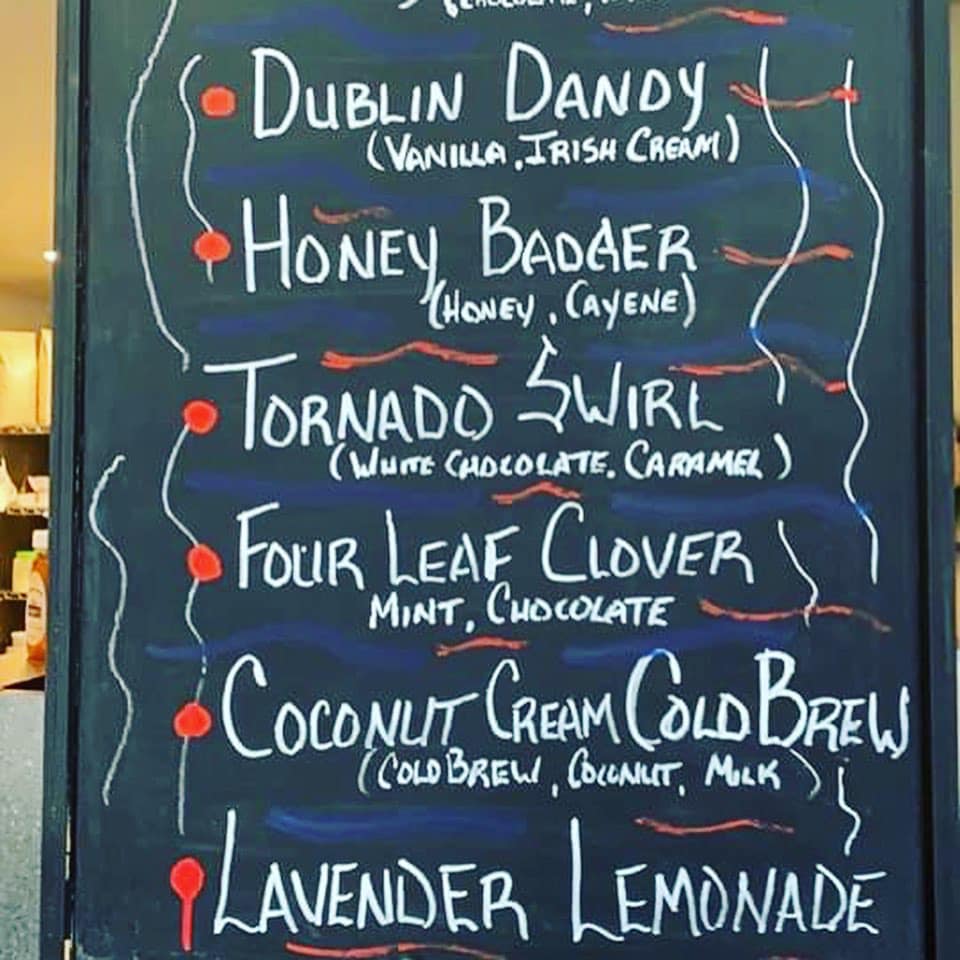 DUBLIN DANDY
(VANILLA, IRISH CREAM)
HONEY BADGER
(HONEY, CAYENE)
TORNADO SWIRL
(WHITE CHOCOLATE, CARAMEL)
FOUR LEAF CLOVER
MINT, CHOCOLATE
COCONUT CREAM COLD BREW
(COLD BREW, COCONUT, MILK)
LAVENDER LEMONADE